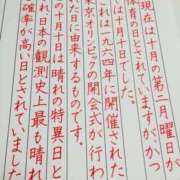 現在は十月の第二月曜日が
体育の日とされていますがかつ
十月十日でした。
れは一九六四年に開催された
東京オリンピックの開会式が行わ
日に由来するものです。
の十月十日は晴れの特異日と
れ日本の観測史上最も晴れ
確率が高い日とされていま